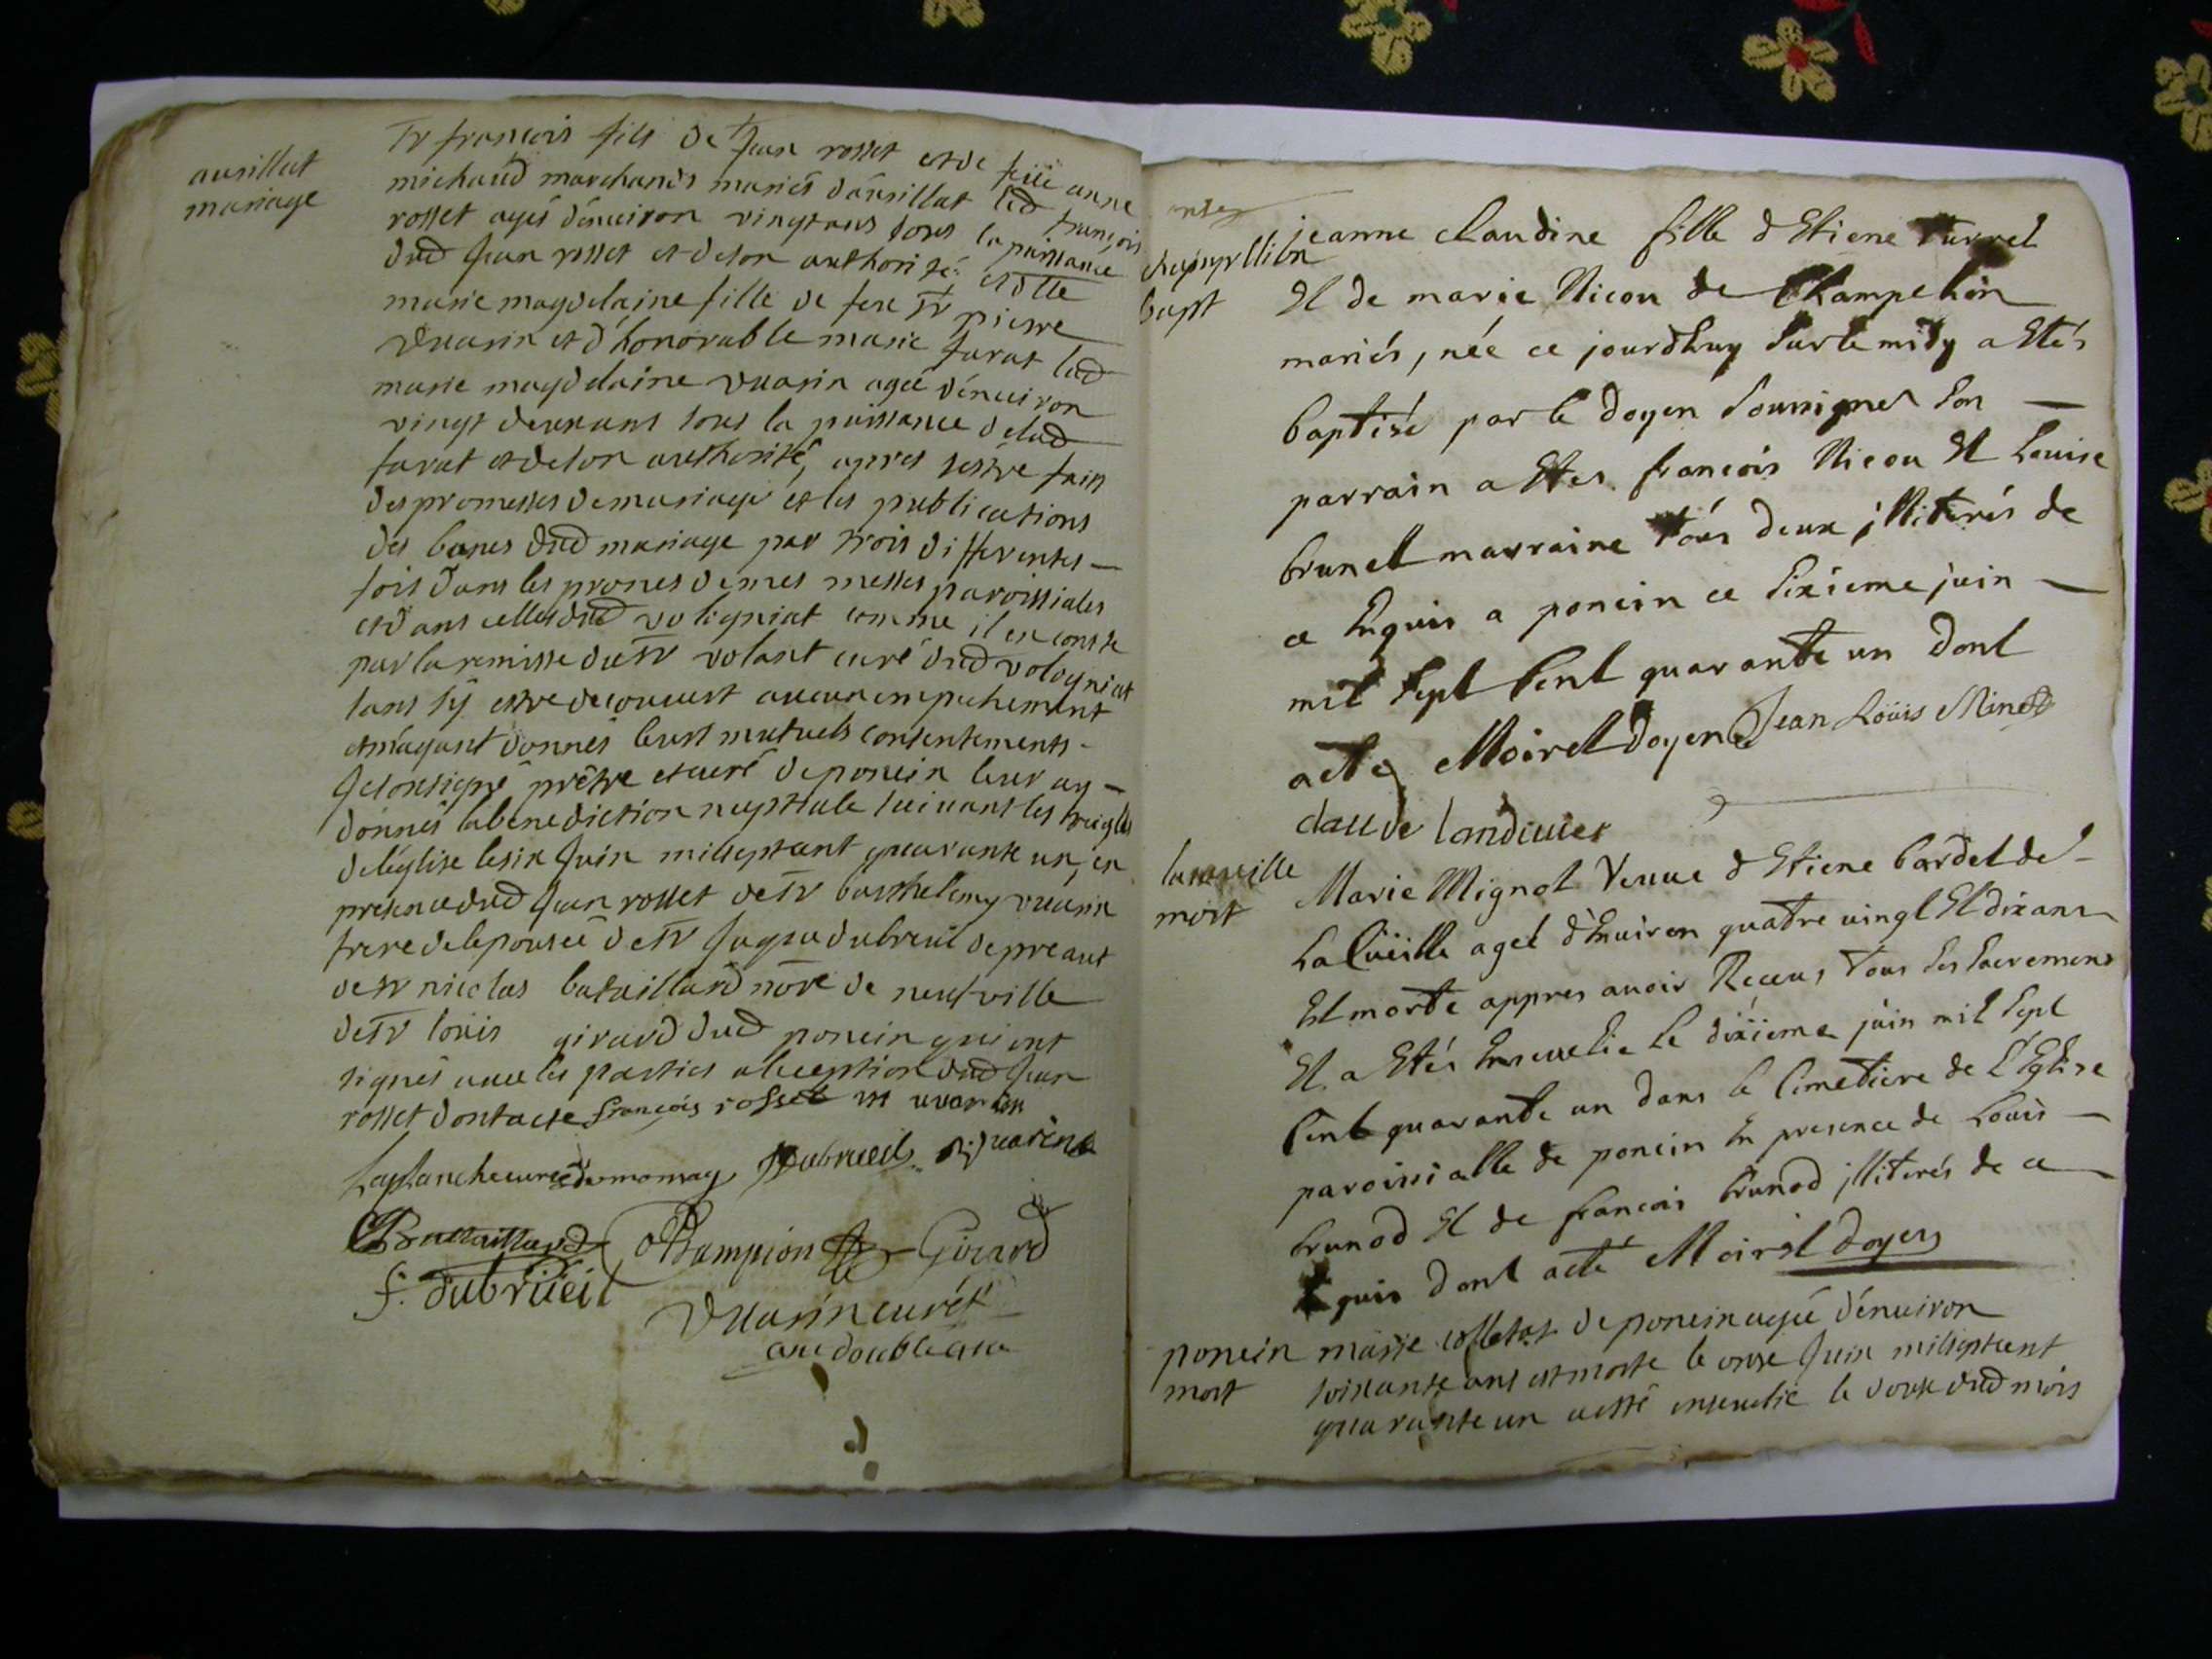 ausillat
mariage
Sr francois fils de Jean rosset et de feüe anne
michaud marchands mariés d'ausillat led françois
rosset agés d'enuiron vingt ans sous la puissance
dud Jean rosset et de son authorité et dlle
marie magdelaine fille de feu Sr pierre
vuarin et d'honorable marie farat lad
marie magdelaine vuarin agée d'enuiron
vingt deux ans sous la puissance de lad
farat et de son authorité, apres s'estre faits
des promesses de mariage et les publications
des bancs dud mariage par trois differentes
fois dans les prones de mes messes paroissiales
et dans celles dud vologniat comme il en conste
par la remisse du Sr volant curé dud vologniat
sans s'ÿ estre decouuert aucun empechement
et m'ayant donnés leurs mutuels consentements
Je soussigné prêtre et curé de poncin leur ay
donnés la benediction nuptiale suiuant les reigles
de l'église le six Juin mil sept cent quarante un, en
presence dud Jean rosset de Sr barthelemy vuarin
frere de l'epousée de Sr Jaque dubreuil de preaut
de Sr nicolas bataillard nore de neufville
de Sr loüis girard dud poncin qui ont
signés auec les parties a l'eception dud Jean
rosset dont acte françois rosset m vuarin
Laplanche curé de mornay Dubrueil vuarin
Battaillard Champion Girard
f. dubrüeil
Vuarin curé

jeanne claudine fille d Etiene Turrel
champeillion
bapt
Et de marie Nicou de Champelion
mariés, née ce jourdhuy sur le midy a Etés
baptisé par le doyen soussigner son
parrain a Etes francois Nicou Et Louise
brunet marraine tous deux jlliterés de
ce Enquis a poncin ce sixieme juin
mil sept Cent quarante un dont
acte Moirel doyen Jean Loüis Minet
claude landiuier
la cueille
mort
Marie Mignot Veuue d Etiene bardet de
La Cueille ageé d'Enuiron quatre uingt Et dix ans
Et morte appres auoir Receus tous ses sacremens
Et a Etés Enseuelie le dixieme juin mil sept
Cent quarante un dans le Cimetiere de L'Eglise
paroissialle de poncin En presence de Louis
brunod Et de francois brunod jlliterés de ce
Equis dont acte Moirel doyen
poncin
mort
marie colletat de poncin agée d'enuiron
soixante ans est morte le onze Juin mil sept cent
quarante un a esté enseuelie le douze dud mois